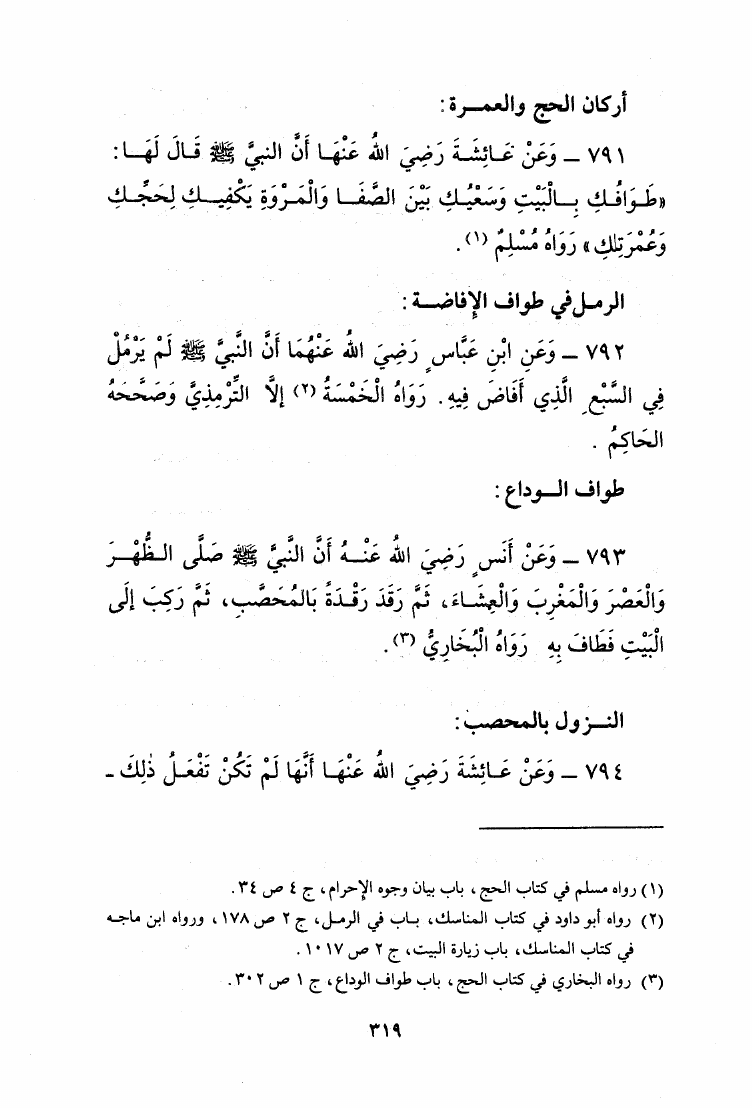 أركان الحج والعمـرة :
٧٩١ ـ وَعَنْ عَائِشَـةَ رَضِيَ اللهُ عَنْهَـا أَنَّ النبيَّ ﷺ قَـالَ لَهَـا :
«طَـوَافُـكِ بِـالْبَيْتِ وَسَعْيُـكِ بَيْنَ الصَّفَـا وَالْمَـرْوَةِ يَكْفِيـكِ لِحَجِّـكِ
وَعُمْرَتِكِ» رَوَاهُ مُسْلِمٌ (١) .
الرمـل في طواف الإفاضـة :
٧٩٢ ـ وَعَنِ ابْنِ عَبَّاسٍ رَضِيَ اللهُ عَنْهُمَا أَنَّ النَّبِيَّ ﷺ لَمْ يَرْمُلْ
فِي السَّبْعِ الَّذِي أَفَاضَ فِيهِ . رَوَاهُ الْخَمْسَةُ (٢) إلَّا التِّرْمِذِيَّ وَصَحَّحَهُ
الحَاكِمُ .
طواف الـوداع :
٧٩٣ ـ وَعَنْ أَنَسٍ رَضِيَ اللهُ عَنْـهُ أَنَّ النَّبِيَّ ﷺ صَلَّى الـظُّهْـرَ
وَالْعَصْرَ وَالْمَغْرِبَ وَالْعِشَـاءَ ، ثُمَّ رَقَدَ رَقْـدَةً بَالمُحَصَّبِ ، ثُمَّ رَكِبَ إلَى
الْبَيْتِ فَطَافَ بِهِ رَوَاهُ الْبُخَارِيُّ (٣) .
النـزول بالمحصب :
٧٩٤ ـ وَعَنْ عَـائِشَةَ رَضِيَ اللهُ عَنْهَـا أَنَّهَا لَمْ تَكُنْ تَفْعَـلُ ذٰلِكَ ـ
(١) رواه مسلم في كتاب الحج ، باب بيان وجوه الإحرام ، ج ٤ ص ٣٤ .
(٢) رواه أبو داود في كتاب المناسك ، بـاب في الرمـل ، ج ٢ ص ١٧٨ ، ورواه ابن ماجـه
في كتاب المناسك ، باب زيارة البيت ، ج ٢ ص ١٠١٧ .
(٣) رواه البخاري في كتاب الحج ، باب طواف الوداع ، ج ١ ص ٣٠٢ .
٣١٩